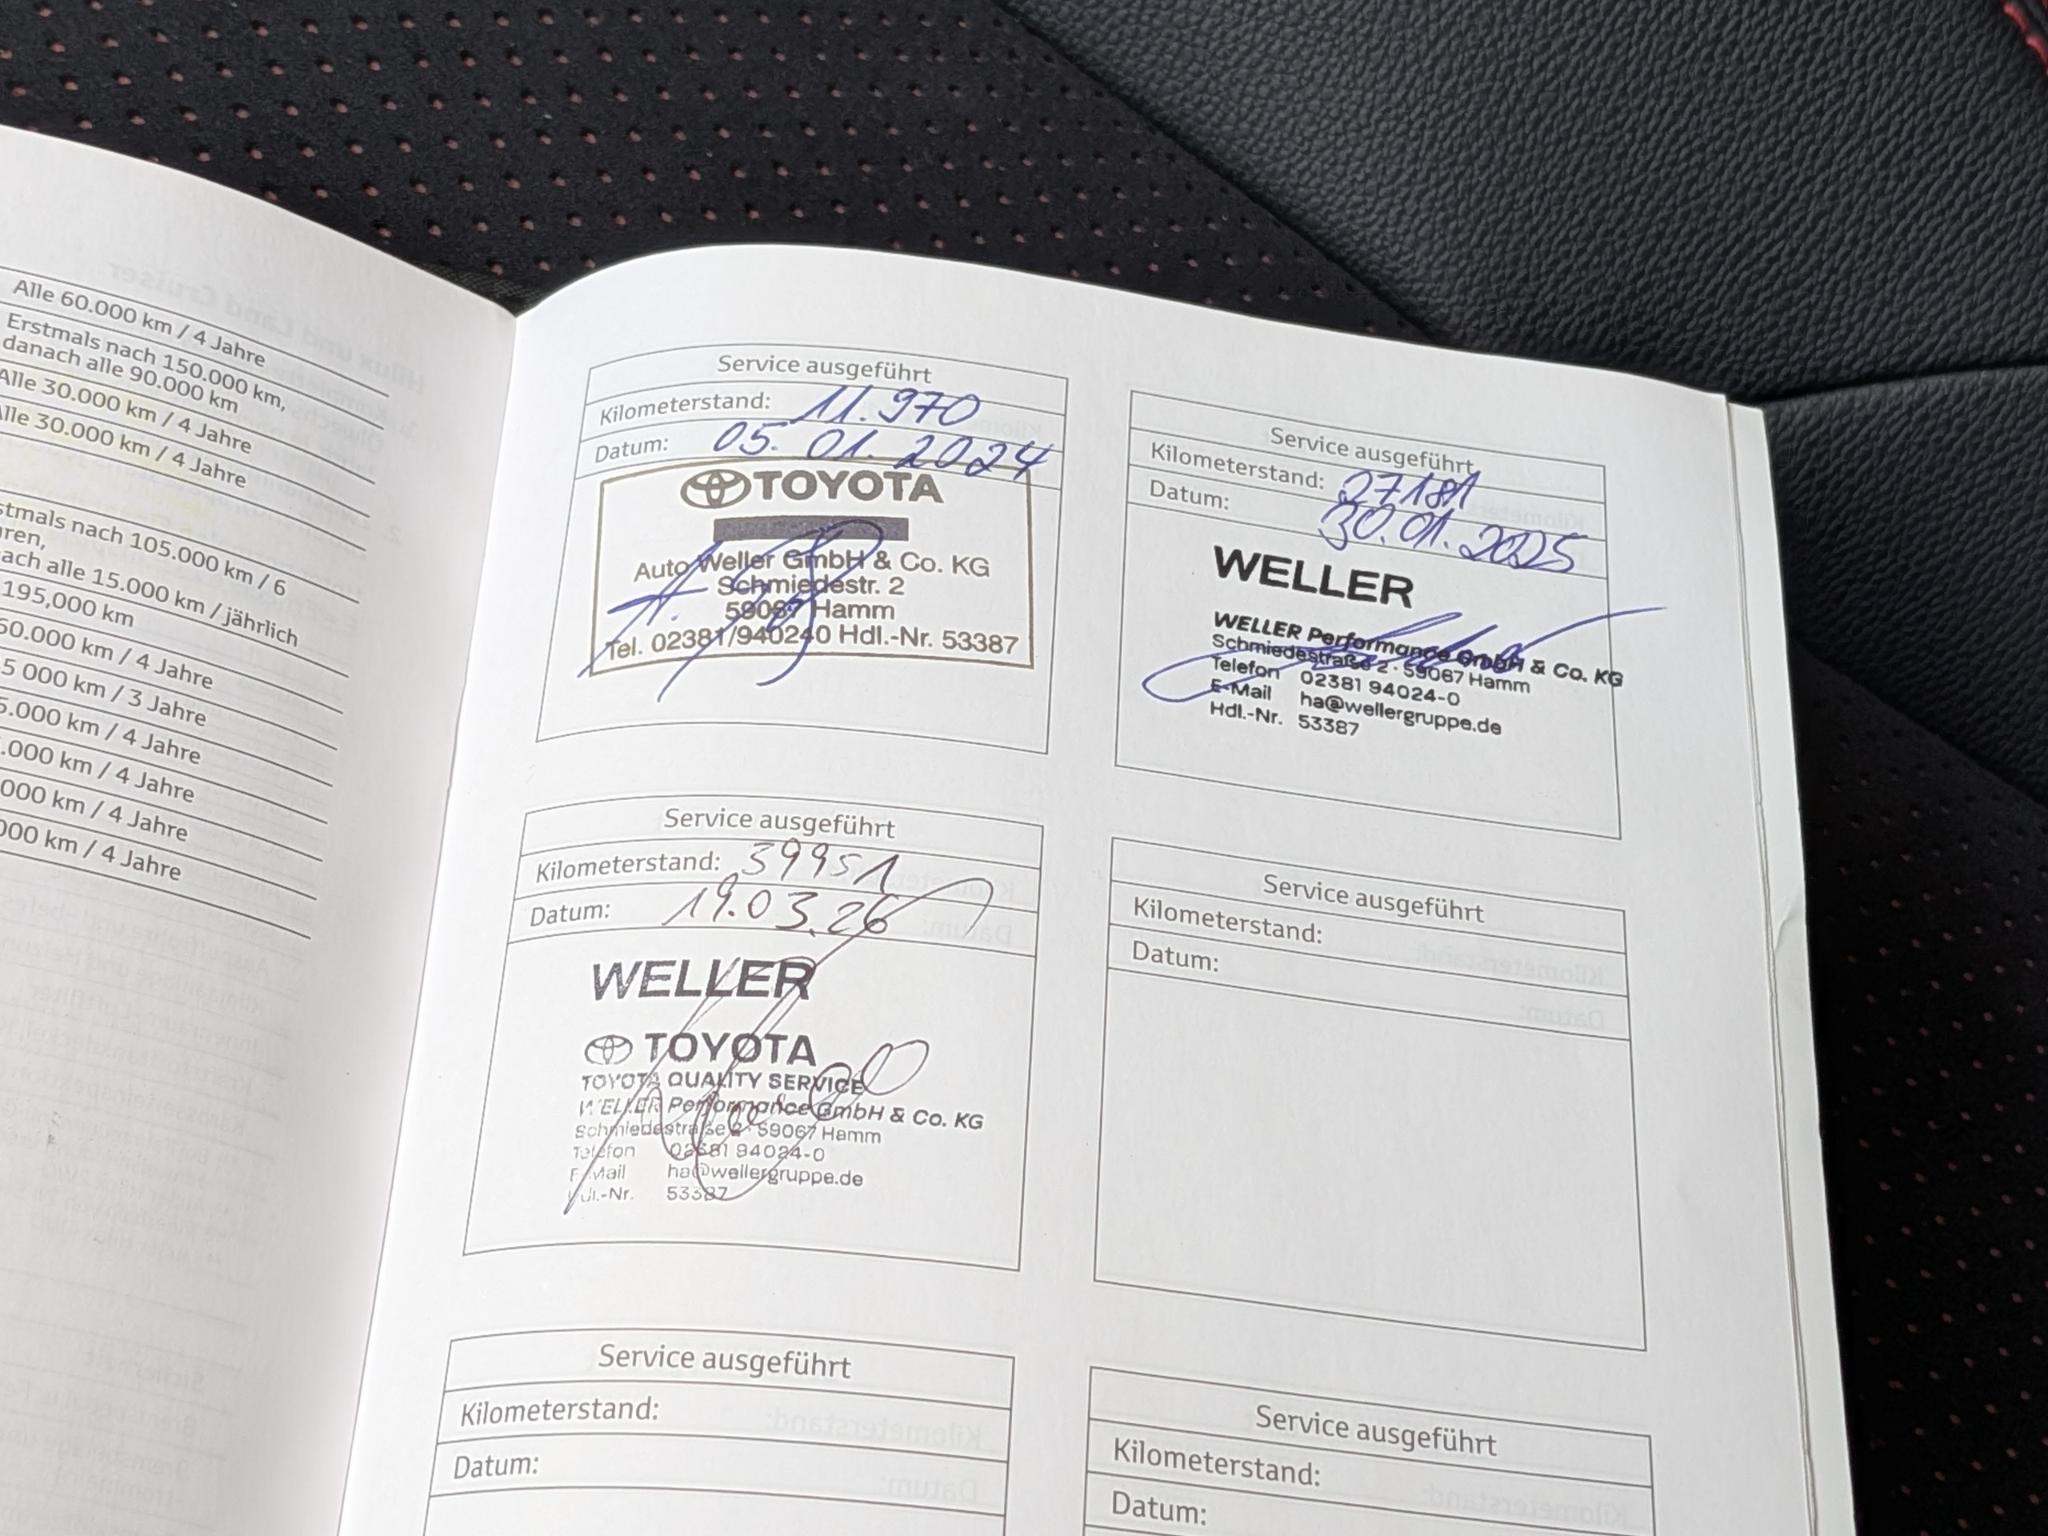 Alle 60.000 km / 4 Jahre
Erstmals nach 150.000 km,
danach alle 90.000 km
Alle 30.000 km / 4 Jahre
Alle 30.000 km / 4 Jahre
stmals nach 105.000 km / 6
ren,
ach alle 15.000 km / jährlich
195,000 km
60.000 km / 4 Jahre
5 000 km / 3 Jahre
5.000 km / 4 Jahre
.000 km / 4 Jahre
000 km / 4 Jahre
000 km / 4 Jahre
Service ausgeführt
Kilometerstand: 11.970
Datum: 05.01.2024
TOYOTA
Auto Weller GmbH & Co. KG
Schmiedestr. 2
59067 Hamm
Tel. 02381/940240 Hdl.-Nr. 53387
Service ausgeführt
Kilometerstand: 27181
Datum: 30.01.2025
WELLER
WELLER Performance GmbH & Co. KG
Schmiedestraße 2 · 59067 Hamm
Telefon 02381 94024-0
E-Mail ha@wellergruppe.de
Hdl.-Nr. 53387
Service ausgeführt
Kilometerstand: 39951
Datum: 19.03.26
WELLER
TOYOTA
TOYOTA QUALITY SERVICE
WELLER Performance GmbH & Co. KG
Schmiedestraße 2 · 59067 Hamm
Telefon 02381 94024-0
E-Mail ha@wellergruppe.de
Hdl.-Nr. 53387
Service ausgeführt
Kilometerstand:
Datum:
Service ausgeführt
Kilometerstand:
Datum:
Service ausgeführt
Kilometerstand:
Datum: